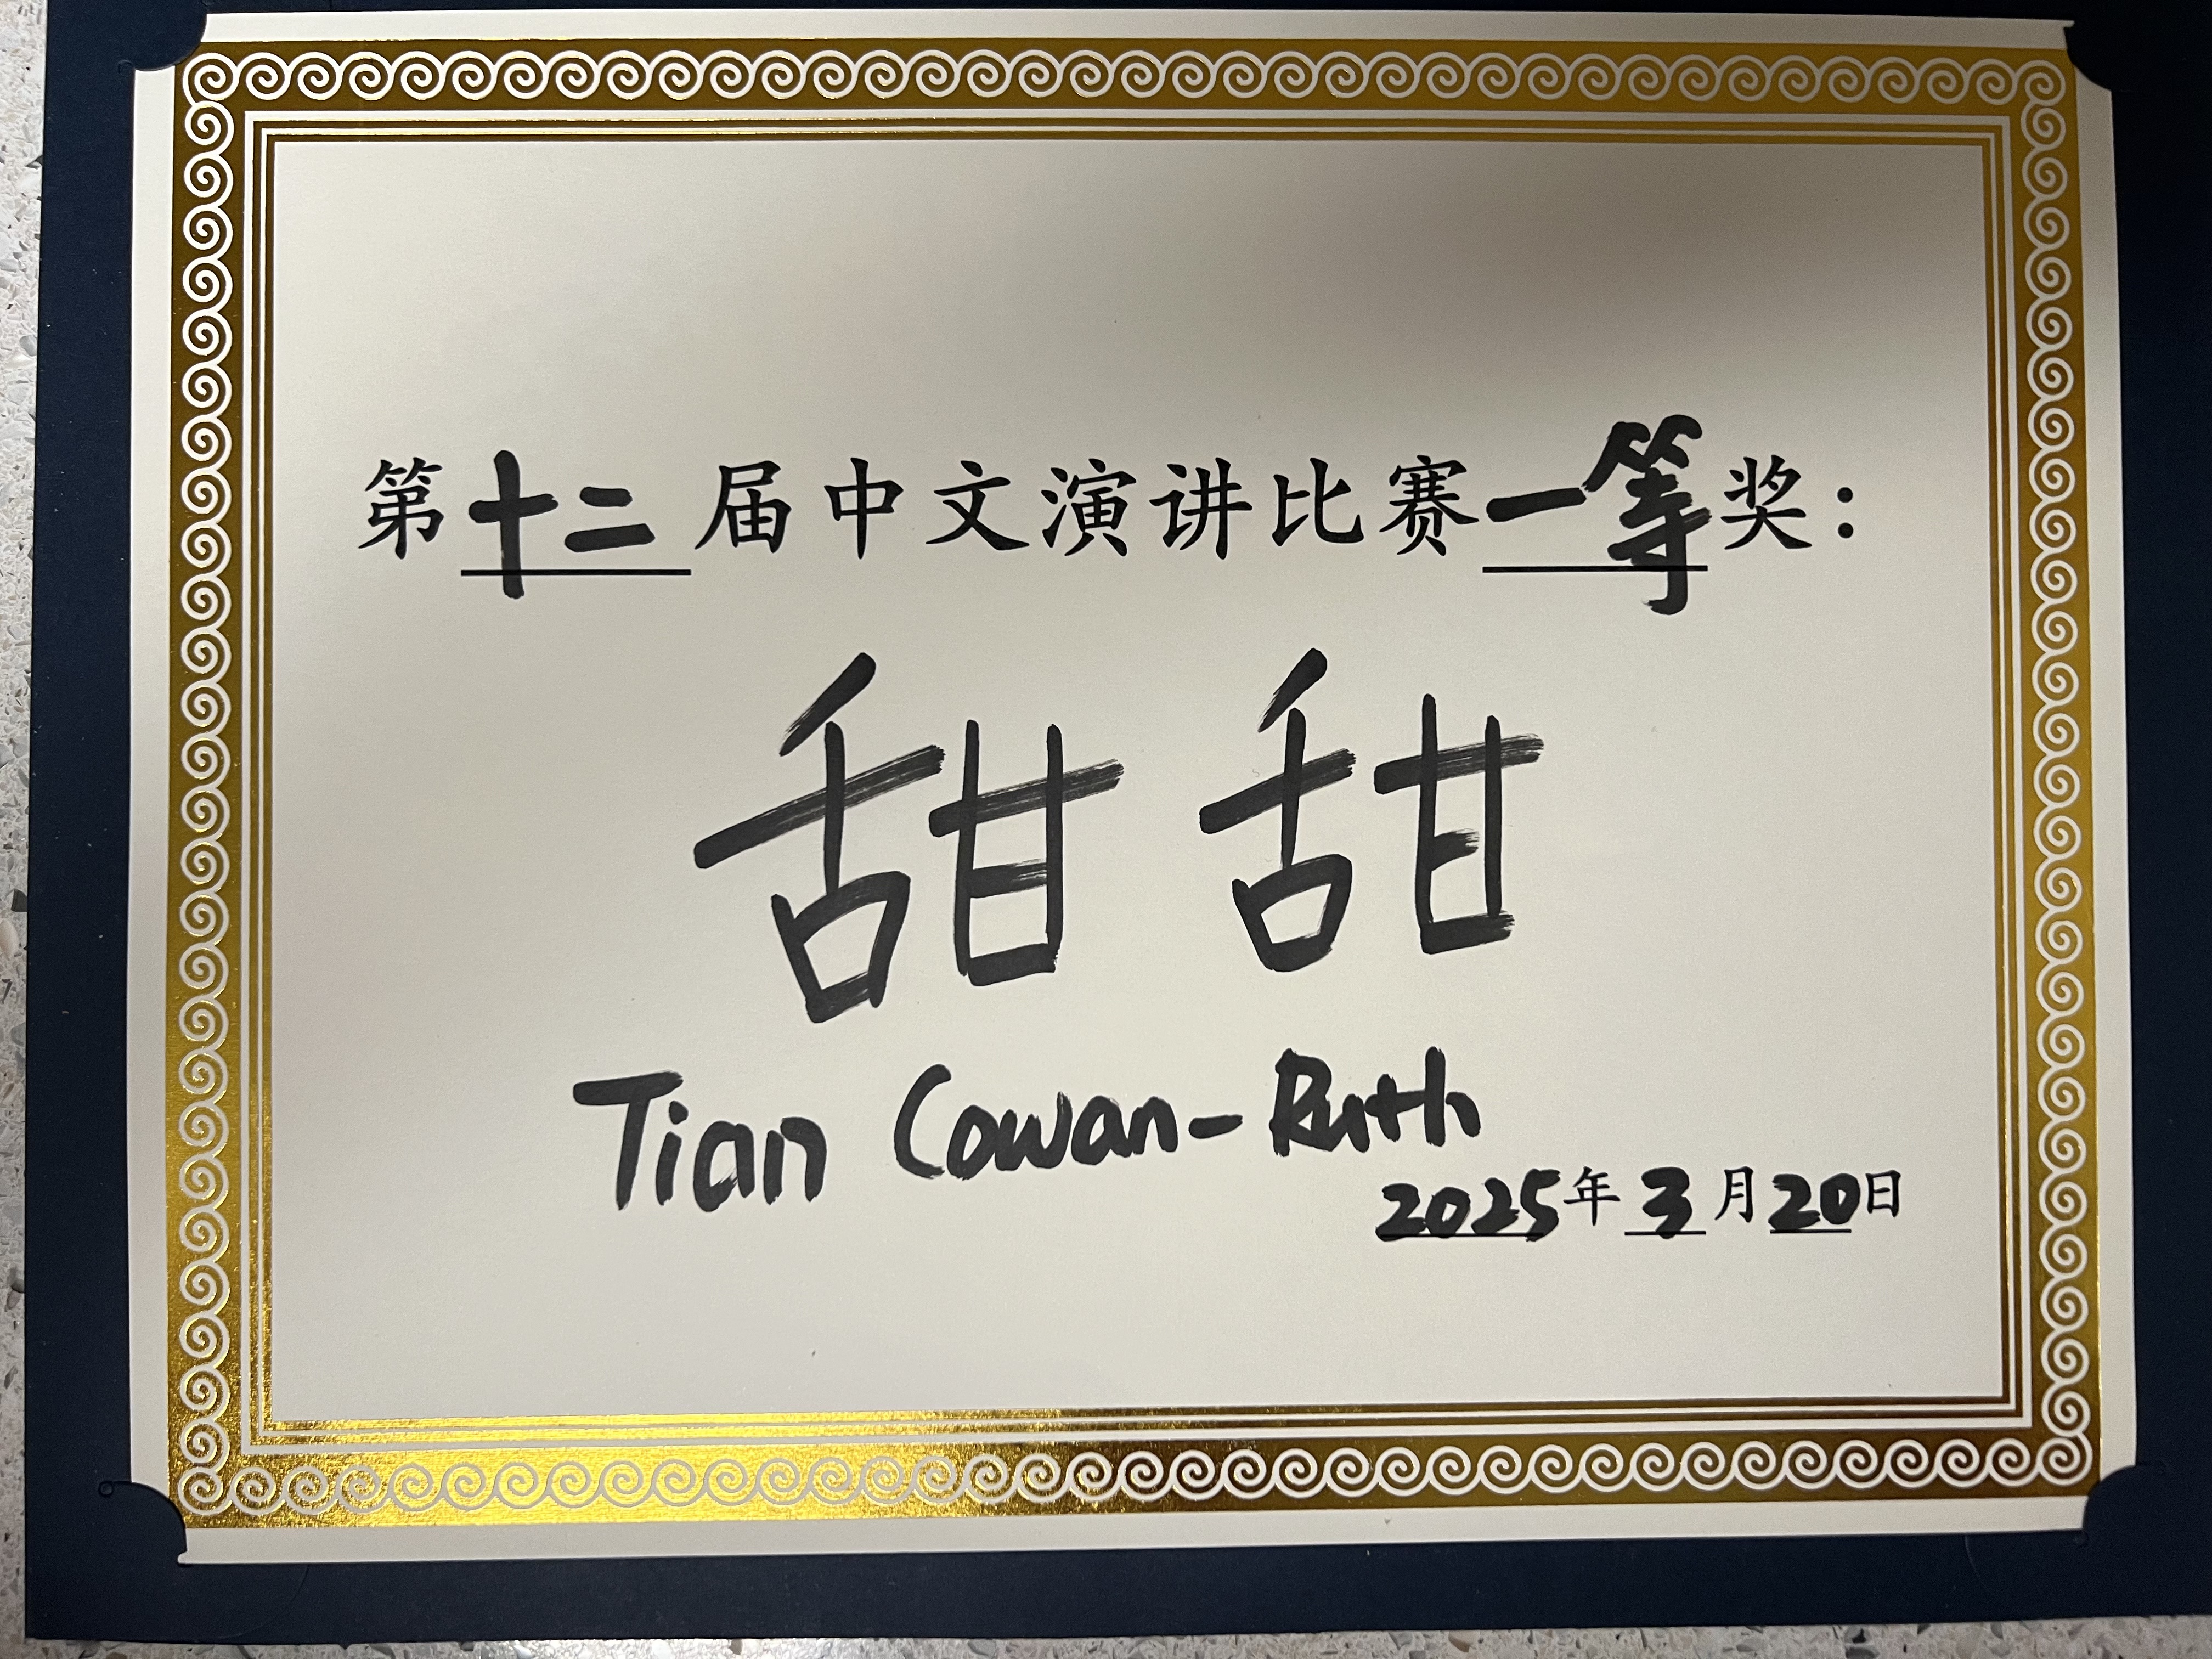 第十二届中文演讲比赛一等奖：
甜甜
Tian Cowan-Ruth
2025年3月20日